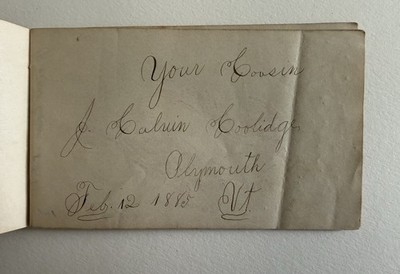 Your Cousin
J. Calvin Coolidge
Plymouth
Feb. 12 1885 Vt.